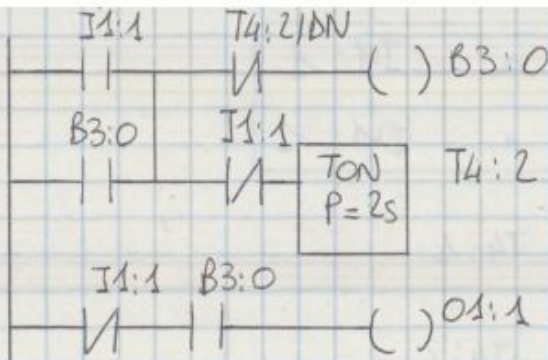 I1:1 T4:2/DN
B3:0
B3:0 I1:1
TON T4:2
P=2s
I1:1 B3:0
O1:1